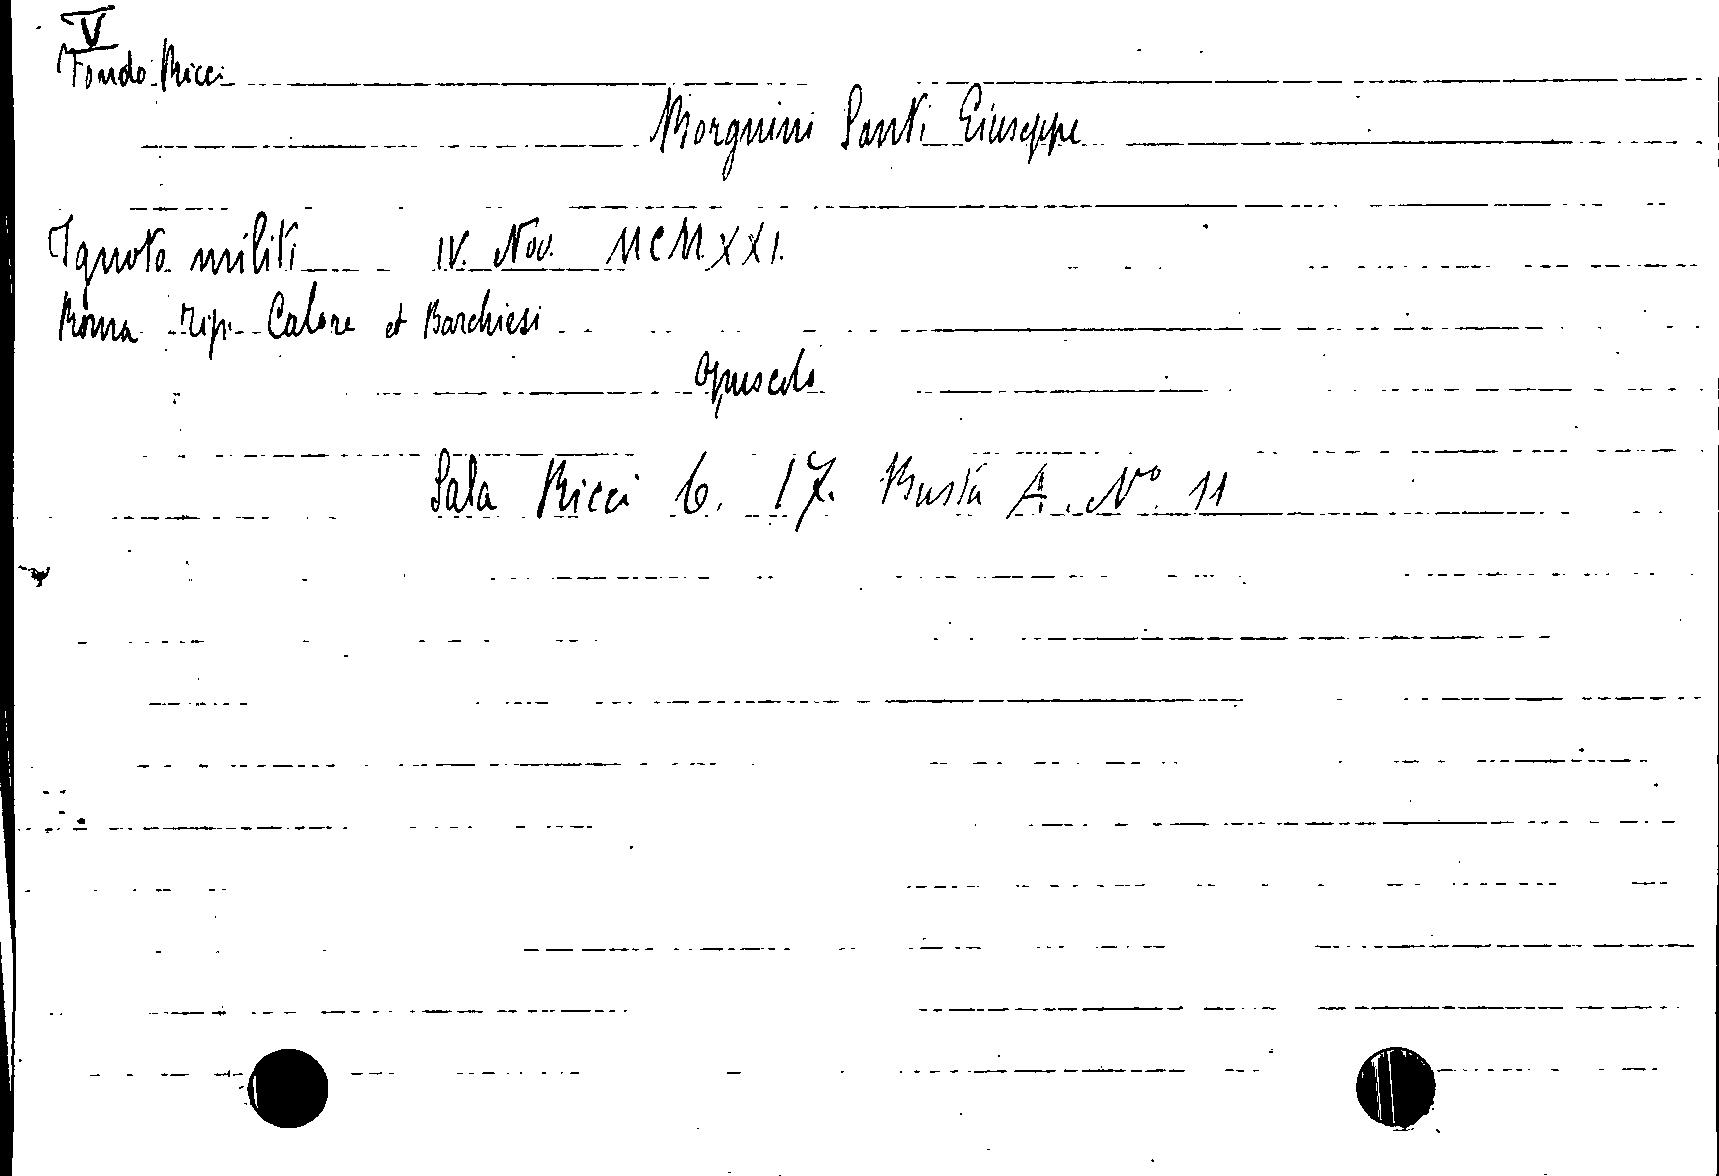 V
Fondo Ricci
Borgnini Santi Giuseppe
Ignoto militi IV. Nov. MCMXXI.
Roma Tip. Calore et Barchiesi
Opuscolo
Sala Ricci 6. 17. Busta A. N° 11